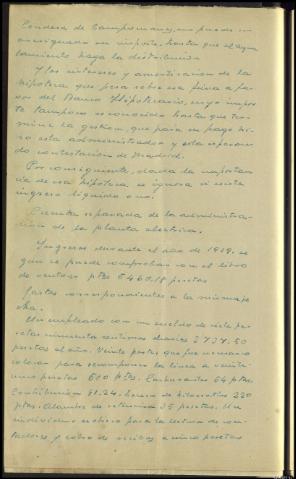 Condesa de Campomanes, no puede ser
consignado su importe, hasta que el ayun
tamiento haga la distribución
Y los intereses y amortización de la
hipoteca que pesa sobre esa finca a fa-
vor del Banco Hipotecario, cuyo impor
te tampoco es conocido hasta que ter-
mine la gestión, que para su pago hi-
zo este administrador y está esperan-
do contestación de Madrid.
Por consiguiente, dada la importan
cia de esa hipoteca, se ignora si existe
ingreso líquido o no.
Cuenta separada de la administra-
ción de la planta eléctrica.
Ingresos durante el año de 1919, se
gún se puede comprobar con el libro
de ventas pts 5460.18 pesetas
Gastos correspondientes a la misma fe
cha.
Un empleado con un sueldo de siete pe-
setas cincuenta céntimos diarios 2737.50
pesetas al año. Veinte postes que fue necesario
colocar para recomponer la línea a veinti
una pesetas 600 pts. Embarcarlos 64 pts.
Contribución 51.24. de kilowatios 220
pts. Alambre de 35 pesetas. Un
individuo para la lectura de con-
tadores y cobro de recibos a cinco pesetas